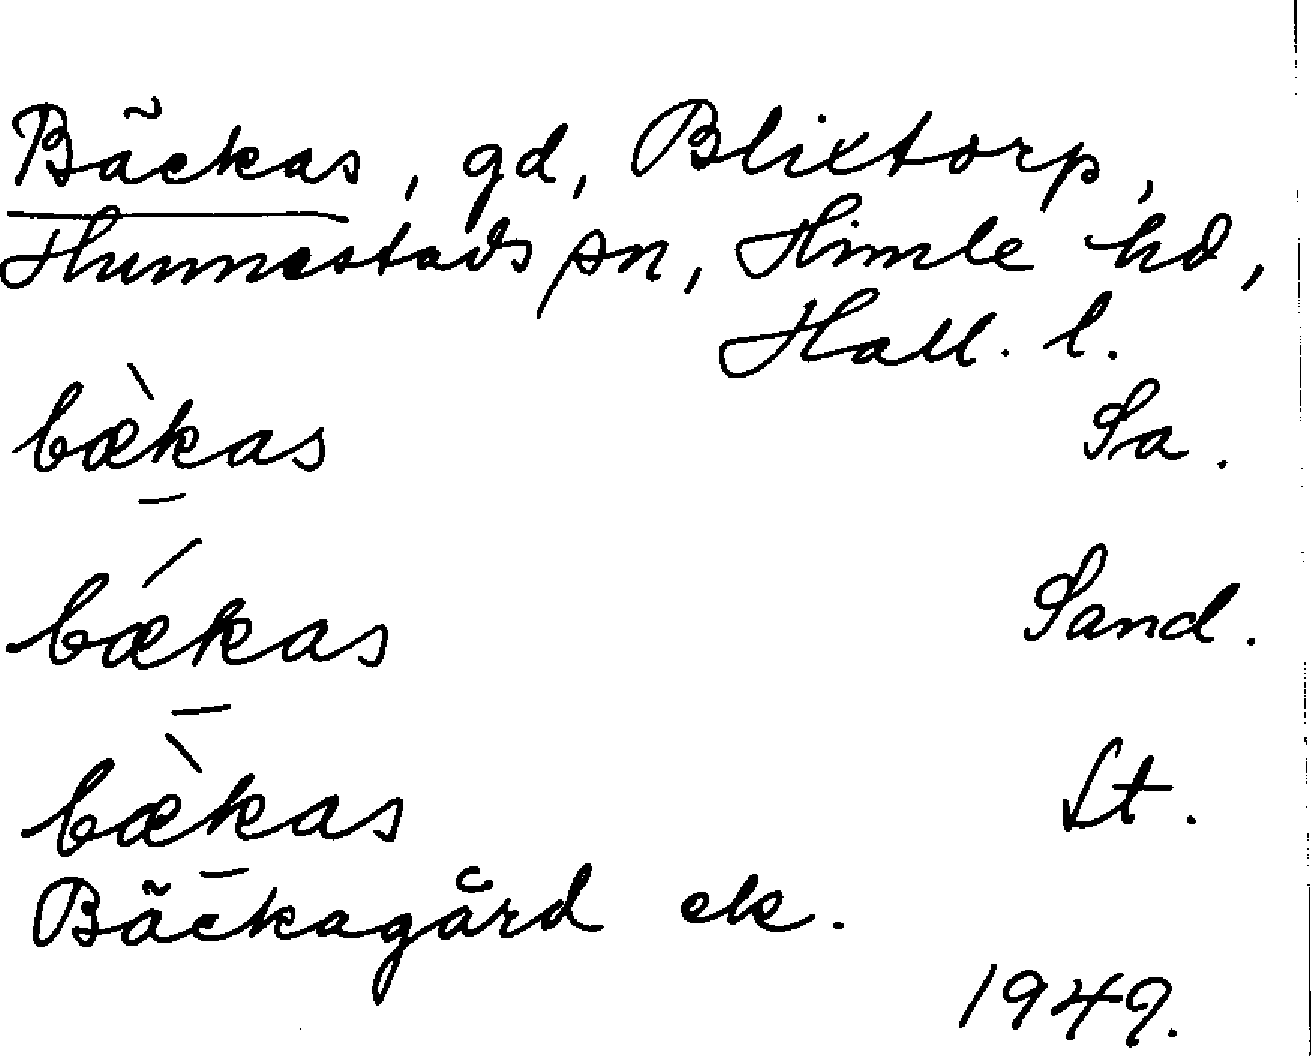 Bäckas, gd, Blixtorp,
Hunnestads sn, Himle hd,
Hall. l.
bæ̀kas Sa.
bǽkas Sand.
bæ̀kas Lt.
Bäckagård ek.
1949.